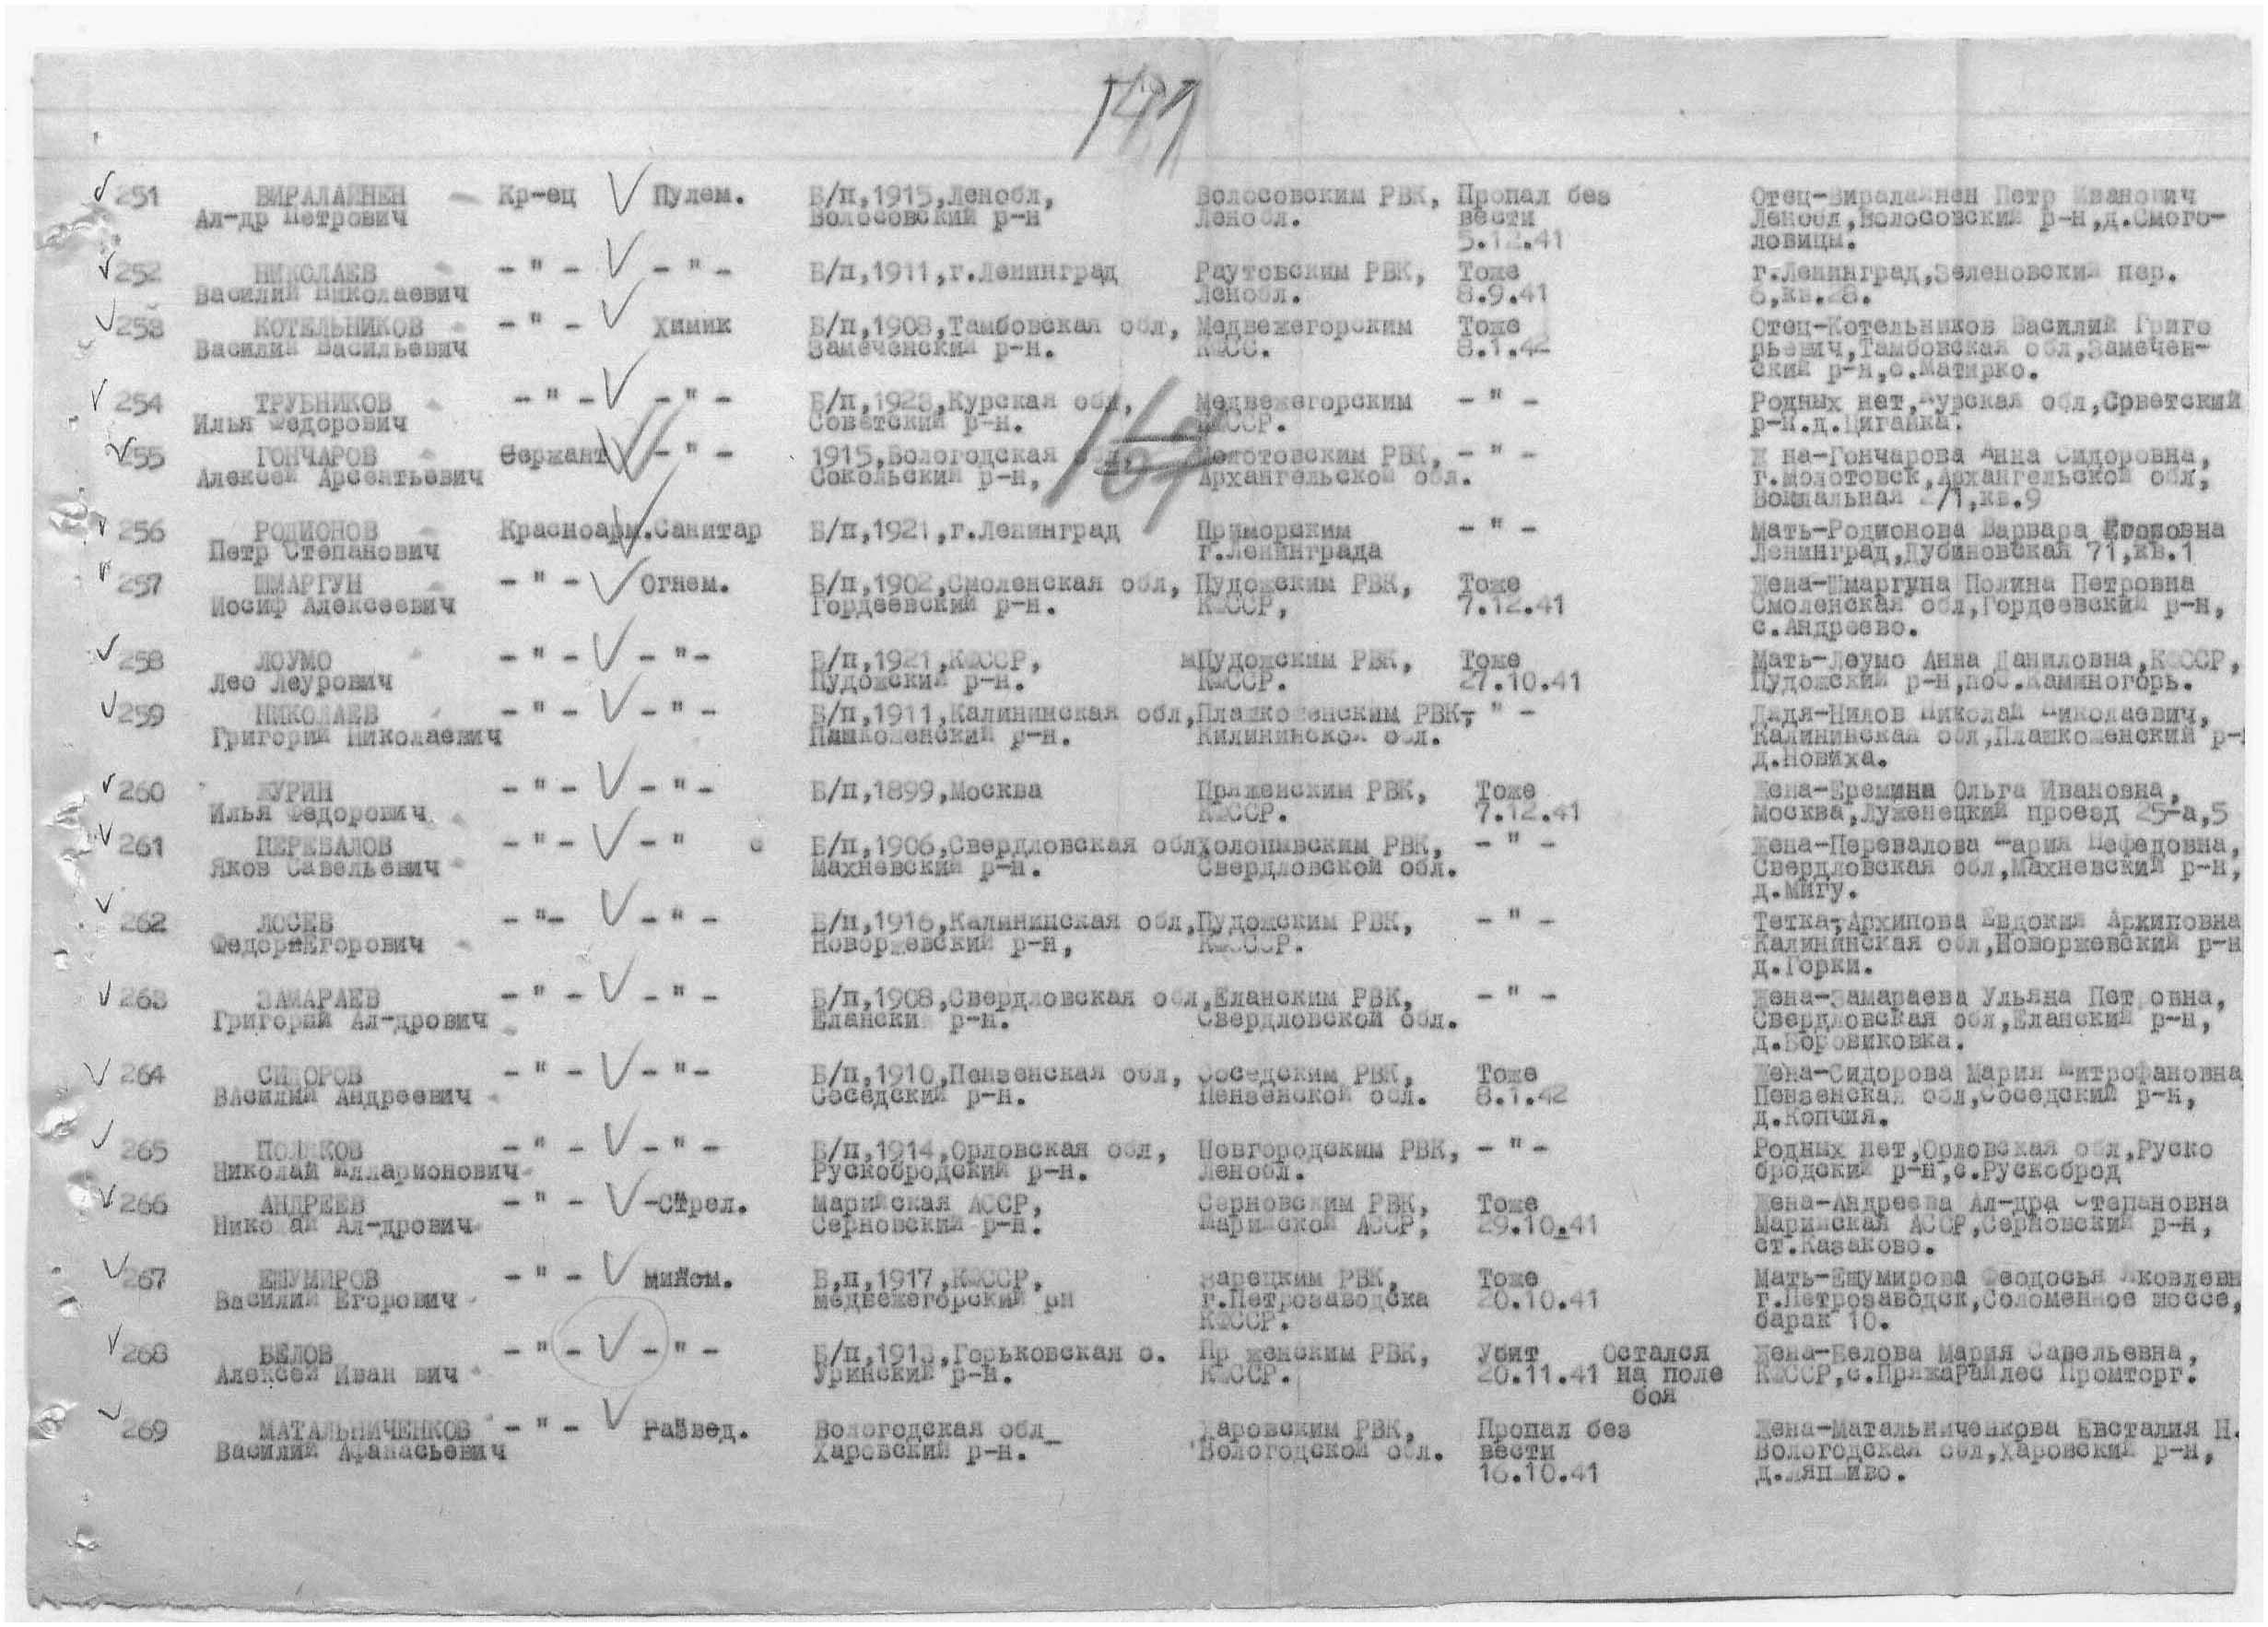 251 ВИРАЛАЙНЕН Кр-ец Пулем. Б/п,1915,Ленобл, Волосовским РВК, Пропал без Отец-Виралайнен Петр Иванович
Ал-др Петрович Волосовский р-н Ленобл. вести Ленобл,Волосовский р-н,д.Смого-
5.12.41 ловицы.
252 НИКОЛАЕВ -"- -"- Б/п,1911,г.Ленинград Раутовским РВК, Тоже г.Ленинград,Зеленовский пер.
Василий Николаевич Ленобл. 8.9.41 6,кв.28.
253 КОТЕЛЬНИКОВ -"- Химик Б/п,1908,Тамбовская обл, Медвежегорским Тоже Отец-Котельников Василий Григо
Василий Васильевич Замеченский р-н. КФСС. 8.1.42 рьевич,Тамбовская обл,Замечен-
ский р-н,с.Матырко.
254 ТРУБНИКОВ -"- -"- Б/п,1923,Курская обл, Медвежегорским -"- Родных нет,Курская обл,Советский
Илья Федорович Советский р-н. КФССР. р-н.д.Циганка.
255 ГОНЧАРОВ Сержант -"- 1915,Вологодская Молотовским РВК, -"- Ж на-Гончарова Анна Сидоровна,
Алексей Арсентьевич Сокольский р-н, Архангельской обл. г.Молотовск,Архангельской обл,
Вокзальная 2/1,кв.9
256 РОДИОНОВ Красноарм.Санитар Б/п,1921,г.Ленинград Приморским -"- Мать-Родионова Варвара Егоровна
Петр Степанович г.Ленинграда Ленинград,Дубиновская 71,кв.1
257 ШМАРГУН -"- Огнем. Б/п,1902,Смоленская обл, Пудожским РВК, Тоже Жена-Шмаргуна Полина Петровна
Иосиф Алексеевич Гордеевский р-н. КФССР, 7.12.41 Смоленская обл,Гордеевский р-н,
с.Андреево.
258 ЛОУМО -"- -"- Б/п,1921,КФССР, Пудожским РВК, Тоже Мать-Лоумо Анна Даниловна,КФССР,
Лео Леурович Пудожский р-н. КФССР. 27.10.41 Пудожский р-н,пос.Каминогорь.
259 НИКОЛАЕВ -"- -"- Б/п,1911,Калининская обл,Плашкошенским РВК, -"- Дядя-Нилов Николай Николаевич,
Григорий Николаевич Плашкошенский р-н. Килининской обл. Калининская обл,Плашкошенский р-
д.Новиха.
260 ЖУРИН -"- -"- Б/п,1899,Москва Пряженским РВК, Тоже Жена-Еремина Ольга Ивановна,
Илья Федорович КФССР. 7.12.41 Москва,Луженецкий проезд 25-а,5
261 ПЕРЕВАЛОВ -"- -" с Б/п,1906,Свердловская обл РВК, -"- Жена-Перевалова Мария Нефедовна,
Яков Савельевич Махневский р-н. Свердловской обл. Свердловская обл,Махневский р-н,
д.Мигу.
262 ЛОСЕВ -"- -"- Б/п,1916,Калининская обл,Пудожским РВК, -"- Тетка-Архипова Евдокия Архиповна
Федор Егорович Новоржевский р-н, КФССР. Калининская обл,Новоржевский р-н
д.Горки.
263 ЗАМАРАЕВ -"- -"- Б/п,1908,Свердловская обл,Еланским РВК, -"- Жена-Замараева Ульяна Пет овна,
Григорий Ал-дрович Елански р-н. Свердловской обл. Свердловская обл,Еланский р-н,
д.Боровиковка.
264 СИДОРОВ -"- -"- Б/п,1910,Пензенская обл, Соседским РВК, Тоже Жена-Сидорова Мария Митрофановна
ВАсилий Андреевич Соседский р-н. Пензенской обл. 8.1.42 Пензенская обл,Соседский р-н,
д.Копчия.
265 ПОЛЯКОВ -"- -"- Б/п,1914,Орловская обл, Новгородским РВК, -"- Родных нет,Орловская обл,Руско
Николай Илларионович Рускобродский р-н. Ленобл. бродский р-н,с.Рускоброд
266 АНДРЕЕВ -"- -Стрел. Марийская АССР, Серновским РВК, Тоже Жена-Андреева Ал-дра Степановна
Нико ай Ал-дрович Серновский р-н. Марийской АССР, 29.10.41 Марийская АССР,Серновский р-н,
ст.Казаково.
267 ЕШУМИРОВ -"- Мином. Б,п,1917,КФССР, Зарецким РВК, Тоже Мать-Ешумирова Феодосья Яковлевн
Василий Егорович Медвежегорский рн г.Петрозаводска 20.10.41 г.Петрозаводск,Соломенное шоссе,
КФССР. барак 10.
268 БЕЛОВ -"- -"- Б/п,1913,Горьковская о. Пр женским РВК, Убит Остался Жена-Белова Мария Савельевна,
Алексей Иван вич Уринский р-н. КФССР. 20.11.41 на поле КФССР,с.Пряжа Промторг.
боя
269 МАТАЛЬНИЧЕНКОВ -"- Развед. Вологодская обл Харовским РВК, Пропал без Жена-Матальниченкова Евсталия Н.
Василий Афанасьевич Харовский р-н. Вологодской обл. вести Вологодская обл,Харовский р-н,
16.10.41